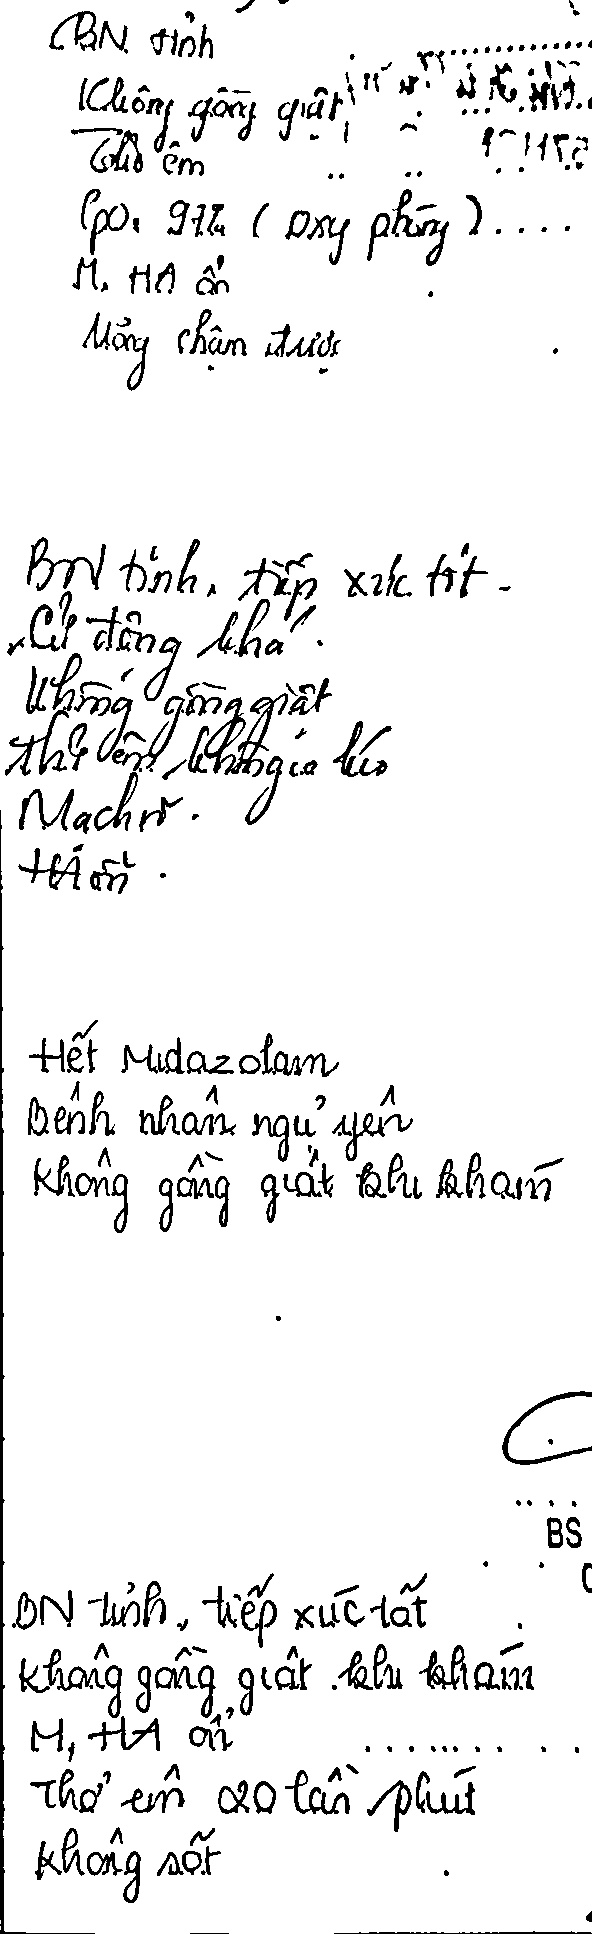 BN tỉnh
Không gồng giật
Thở êm
SpO₂ 97% (oxy phòng)....
M, HA ổn
Mỏng chậm được
BN tỉnh, tiếp xúc tốt.
Cử động khá.
Không gồng giật
thở êm, không co kéo
Mạch rõ.
HA ổn.
Hết Midazolam
Bệnh nhân ngủ yên
Không gồng giật khi khám
BS
BN tỉnh, tiếp xúc tốt
Không gồng giật khi khám
M, HA ổn
Thở êm 20 lần phút
Không sốt